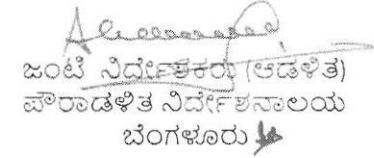 ಜಂಟಿ ನಿರ್ದೇಶಕರು (ಆಡಳಿತ)
ಪೌರಾಡಳಿತ ನಿರ್ದೇಶನಾಲಯ
ಬೆಂಗಳೂರು